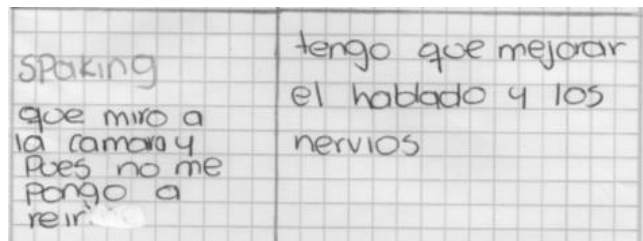 SPaking
que miro a
la camara y
Pues no me
pongo a
reir.
tengo que mejorar
el hablado y los
nervios